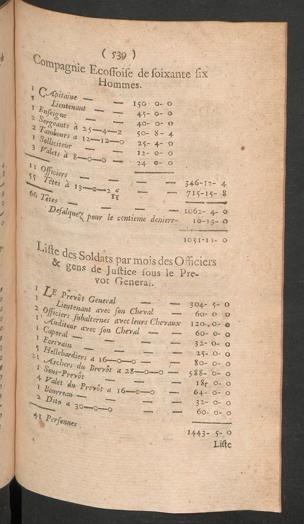 ( 539 )
Compagnie Ecossoise de soixante six
Hommes.
1 Capitaine — — 150-0-0
1 Lieutenant — — 45-0-0
1 Enseigne — — 40-0-0
2 Sergeants à 25-4-2 50-8-4
2 Tambours à 12-12-0 25-4-0
1 Solliciteur — — 12-0-0
3 Valets à 8-0-0 — 24-0-0
11 Officiers — — 346-12-4
55 Têtes à 13-0-2 — 715-15-8
66 Têtes — — 1062-4-0
Desalquez pour le centieme denier 10-13-0
1051-11-0
Liste des Soldats par mois des Officiers
& gens de Justice sous le Pre-
vot General.
1 LE Prevôt General — — 304-5-0
1 Lieutenant avec son Cheval — 60-0-0
2 Officiers subalternes avec leurs Chevaux 120-0-0
1 Auditeur avec son Cheval — 60-0-0
1 Caperal — — 32-0-0
1 Ecrivain — — 25-0-0
5 Hellebardiers à 16-0-0 — 80-0-0
21 Archers du Prevôt à 28-0-0 — 588-0-0
1 Sous-Prevôt — — 18-0-0
4 Valet du Prevôt à 16-0-0 — 64-0-0
1 Bourreau — — 32-0-0
2 Dito à 30-0-0 — 60-0-0
41 Personnes — 1443-5-0
Liste